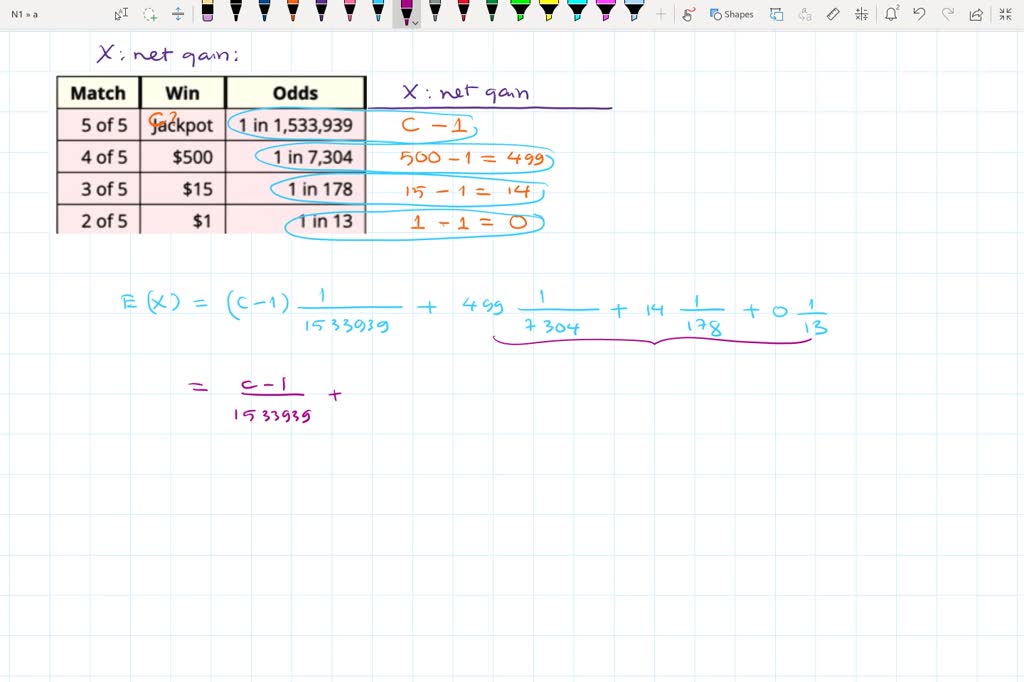 N1 » a
Shapes
X : net gain :
Match Win Odds X : net gain
5 of 5 Jackpot C? 1 in 1,533,939 C - 1
4 of 5 $500 1 in 7,304 500 - 1 = 499
3 of 5 $15 1 in 178 15 - 1 = 14
2 of 5 $1 1 in 13 1 - 1 = 0
E (X) = (C-1) 1/1533939 + 499 1/7304 + 14 1/178 + 0 1/13
= C-1/1533939 +